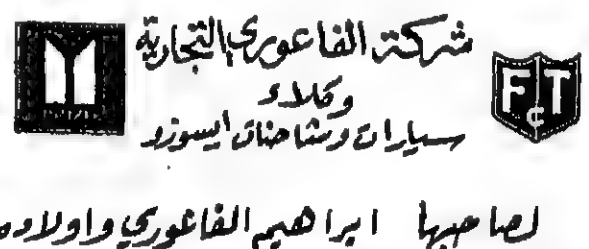 شركة الفاعوري التجارية
وكلاء
سيارات وشاحنات ايسوزو
FTC
لصاحبها ابراهيم الفاعوري واولاده